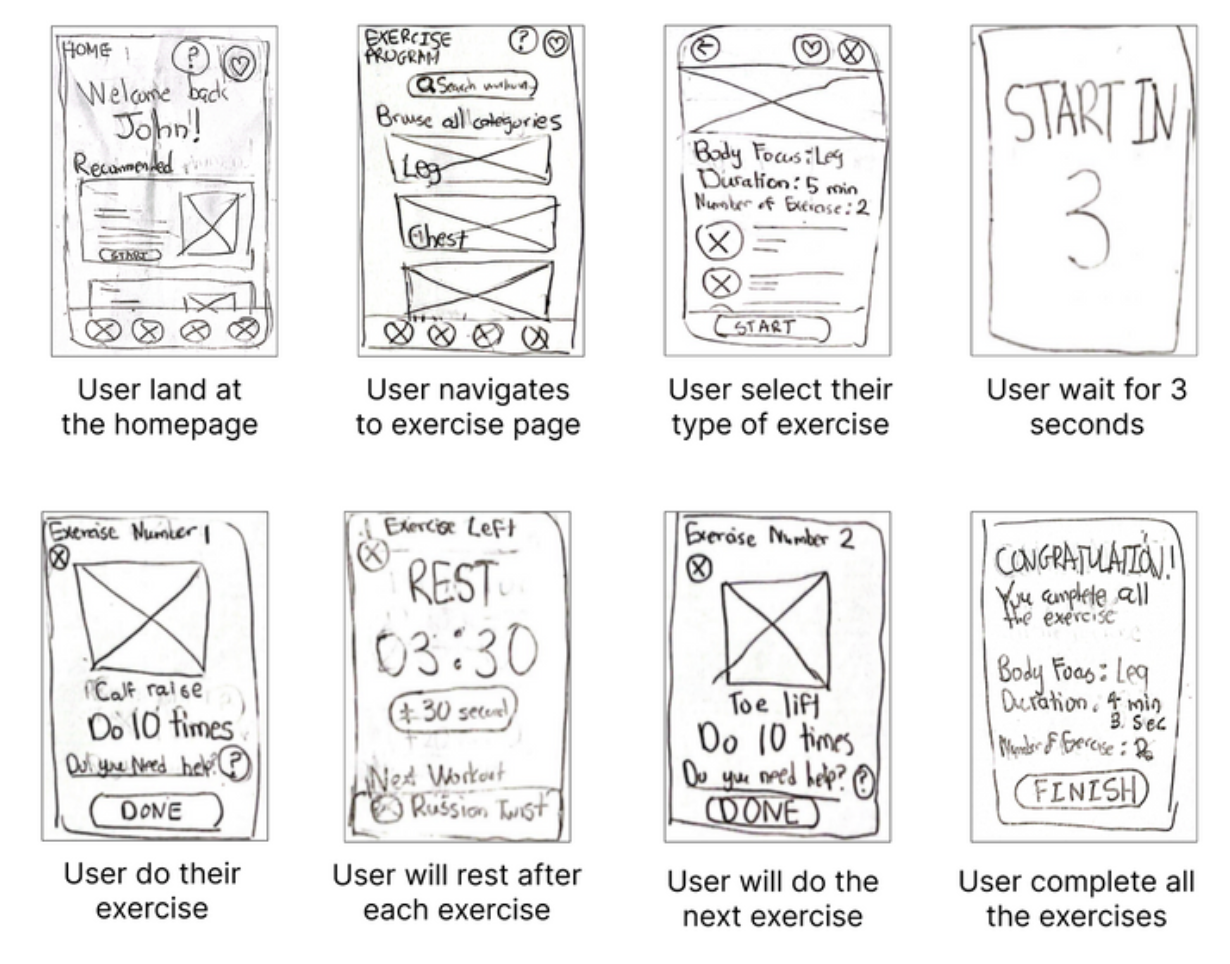 HOME
?
Welcome back
John!
Recommended
START
User land at
the homepage
EXERCISE
PROGRAM
?
Search
Browse all categories
Leg
Chest
User navigates
to exercise page
Body Focus: Leg
Duration: 5 min
Number of Exercise: 2
START
User select their
type of exercise
START IN
3
User wait for 3
seconds
Exercise Number 1
Calf raise
Do 10 times
Do you Need help? ?
DONE
User do their
exercise
Exercise Left
REST
03:30
± 30 second
Next Workout
Russion Twist
User will rest after
each exercise
Exercise Number 2
Toe lift
Do 10 times
Do you need help? ?
DONE
User will do the
next exercise
CONGRATULATION!
You complete all
the exercise
Body Focus: Leg
Duration: 4 min
3 sec
Number of Exercise: 2
FINISH
User complete all
the exercises